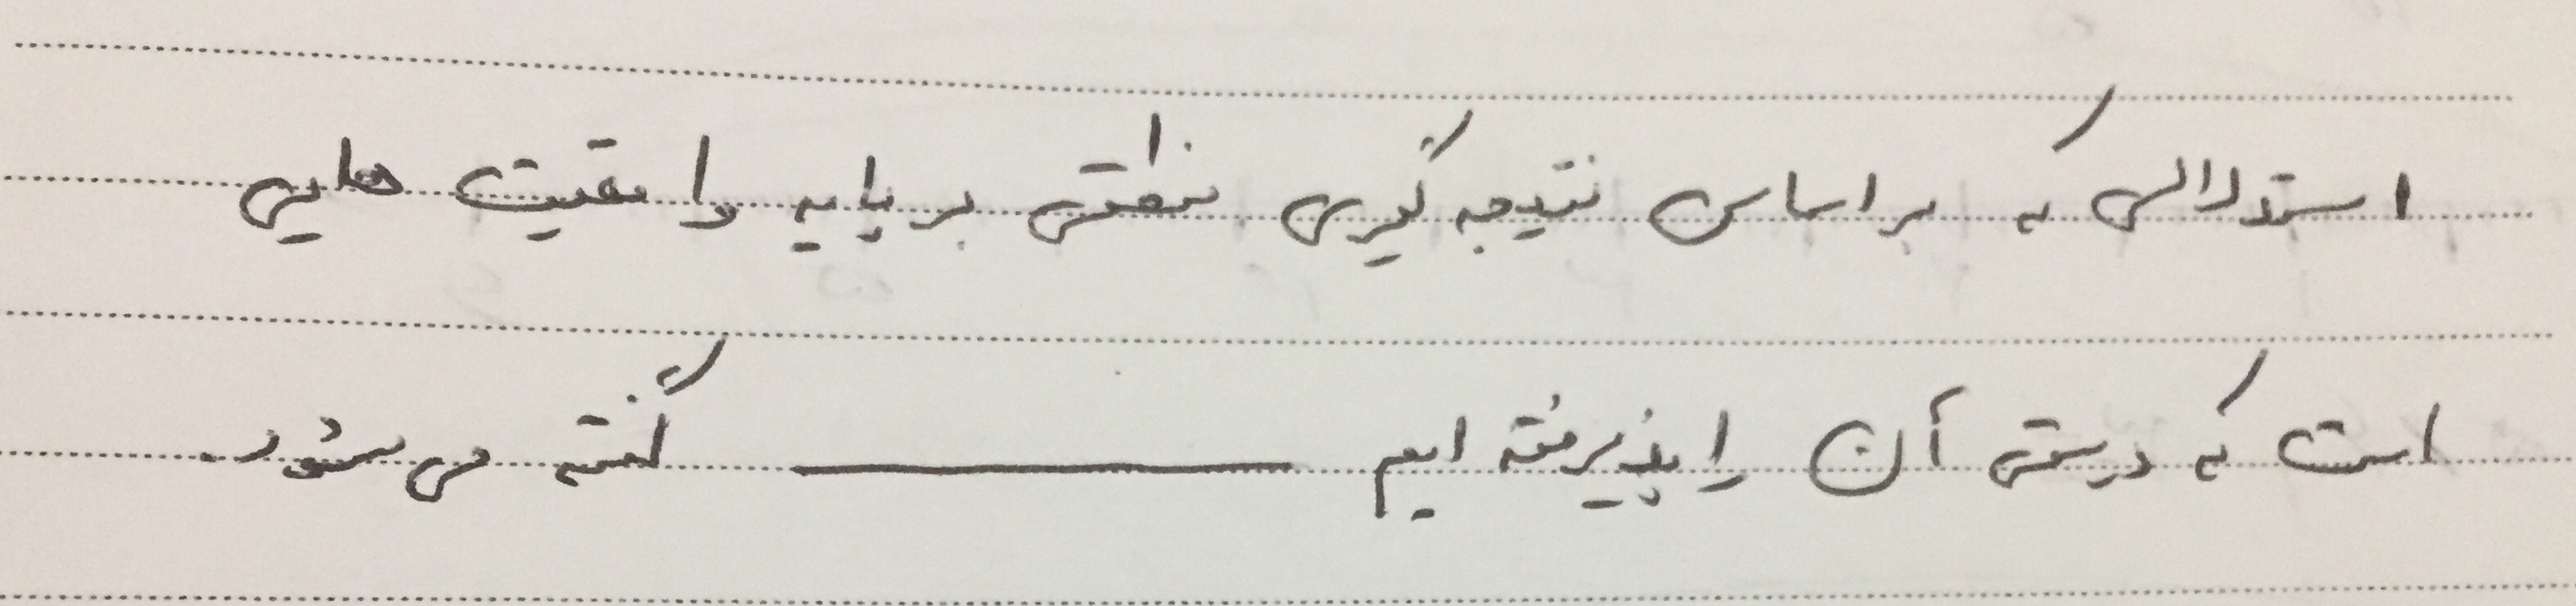 استدلالی که بر اساس نتیجه گیری منطقی بر پایه واقعیت هایی
است که درستی آن را پذیرفته ایم ــــــــــــــ گفته می شود.